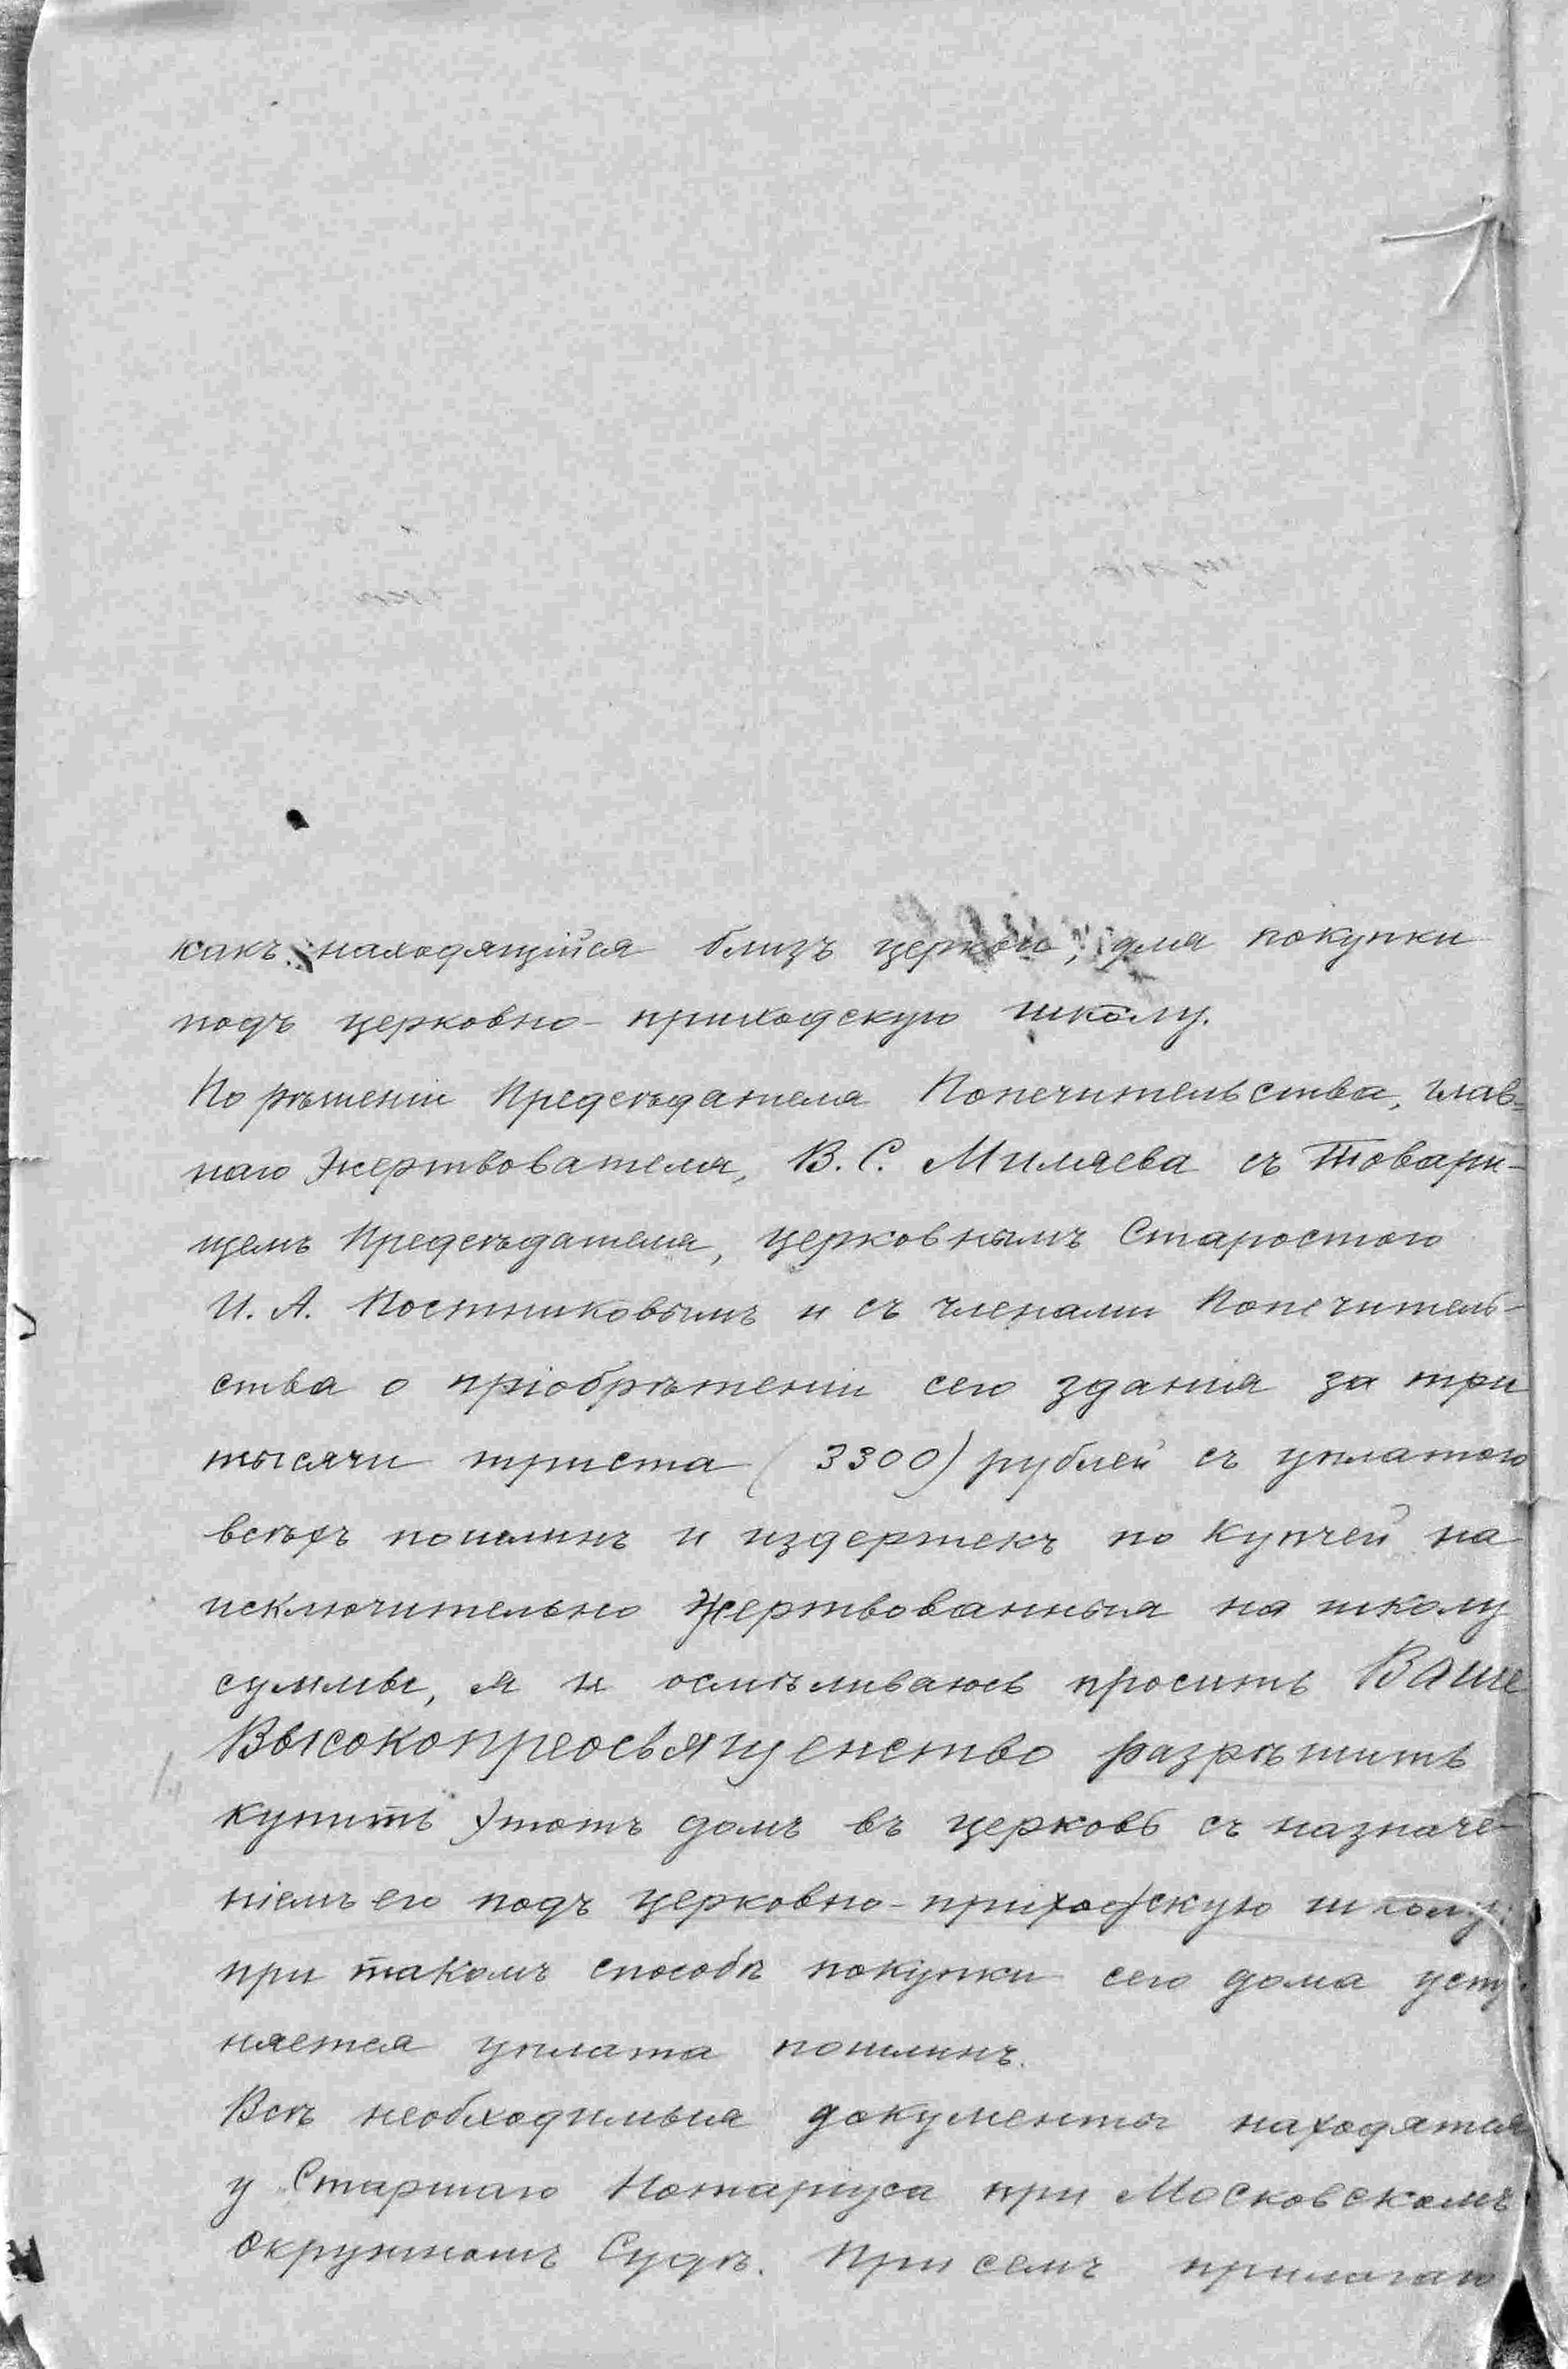 какъ находящійся близъ церкви, для покупки
подъ церковно-приходскую школу.
По рѣшеніи Предсѣдателя Попечительства, глав-
наго жертвователя, В. С. Миляева съ Товари-
щемъ Предсѣдателя, церковнымъ Старостою
И. А. Постниковымъ и съ членами Попечитель-
ства о пріобрѣтеніи сего зданія за три
тысячи триста (3300) рублей съ уплатою
всѣхъ пошлинъ и издержекъ по купчей на
исключительно жертвованныя на школу
суммы, я и осмѣливаюсь просить Ваше
Высокопреосвященство разрѣшить
купить этотъ домъ въ церковь съ назначе-
ніемъ его подъ церковно-приходскую школу;
при такомъ способѣ покупки сего дома
няется уплата пошлинъ.
Всѣ необходимыя документы находятся
у Старшаго Нотаріуса при Московскомъ
Окружномъ Судѣ. При семъ прилагаю